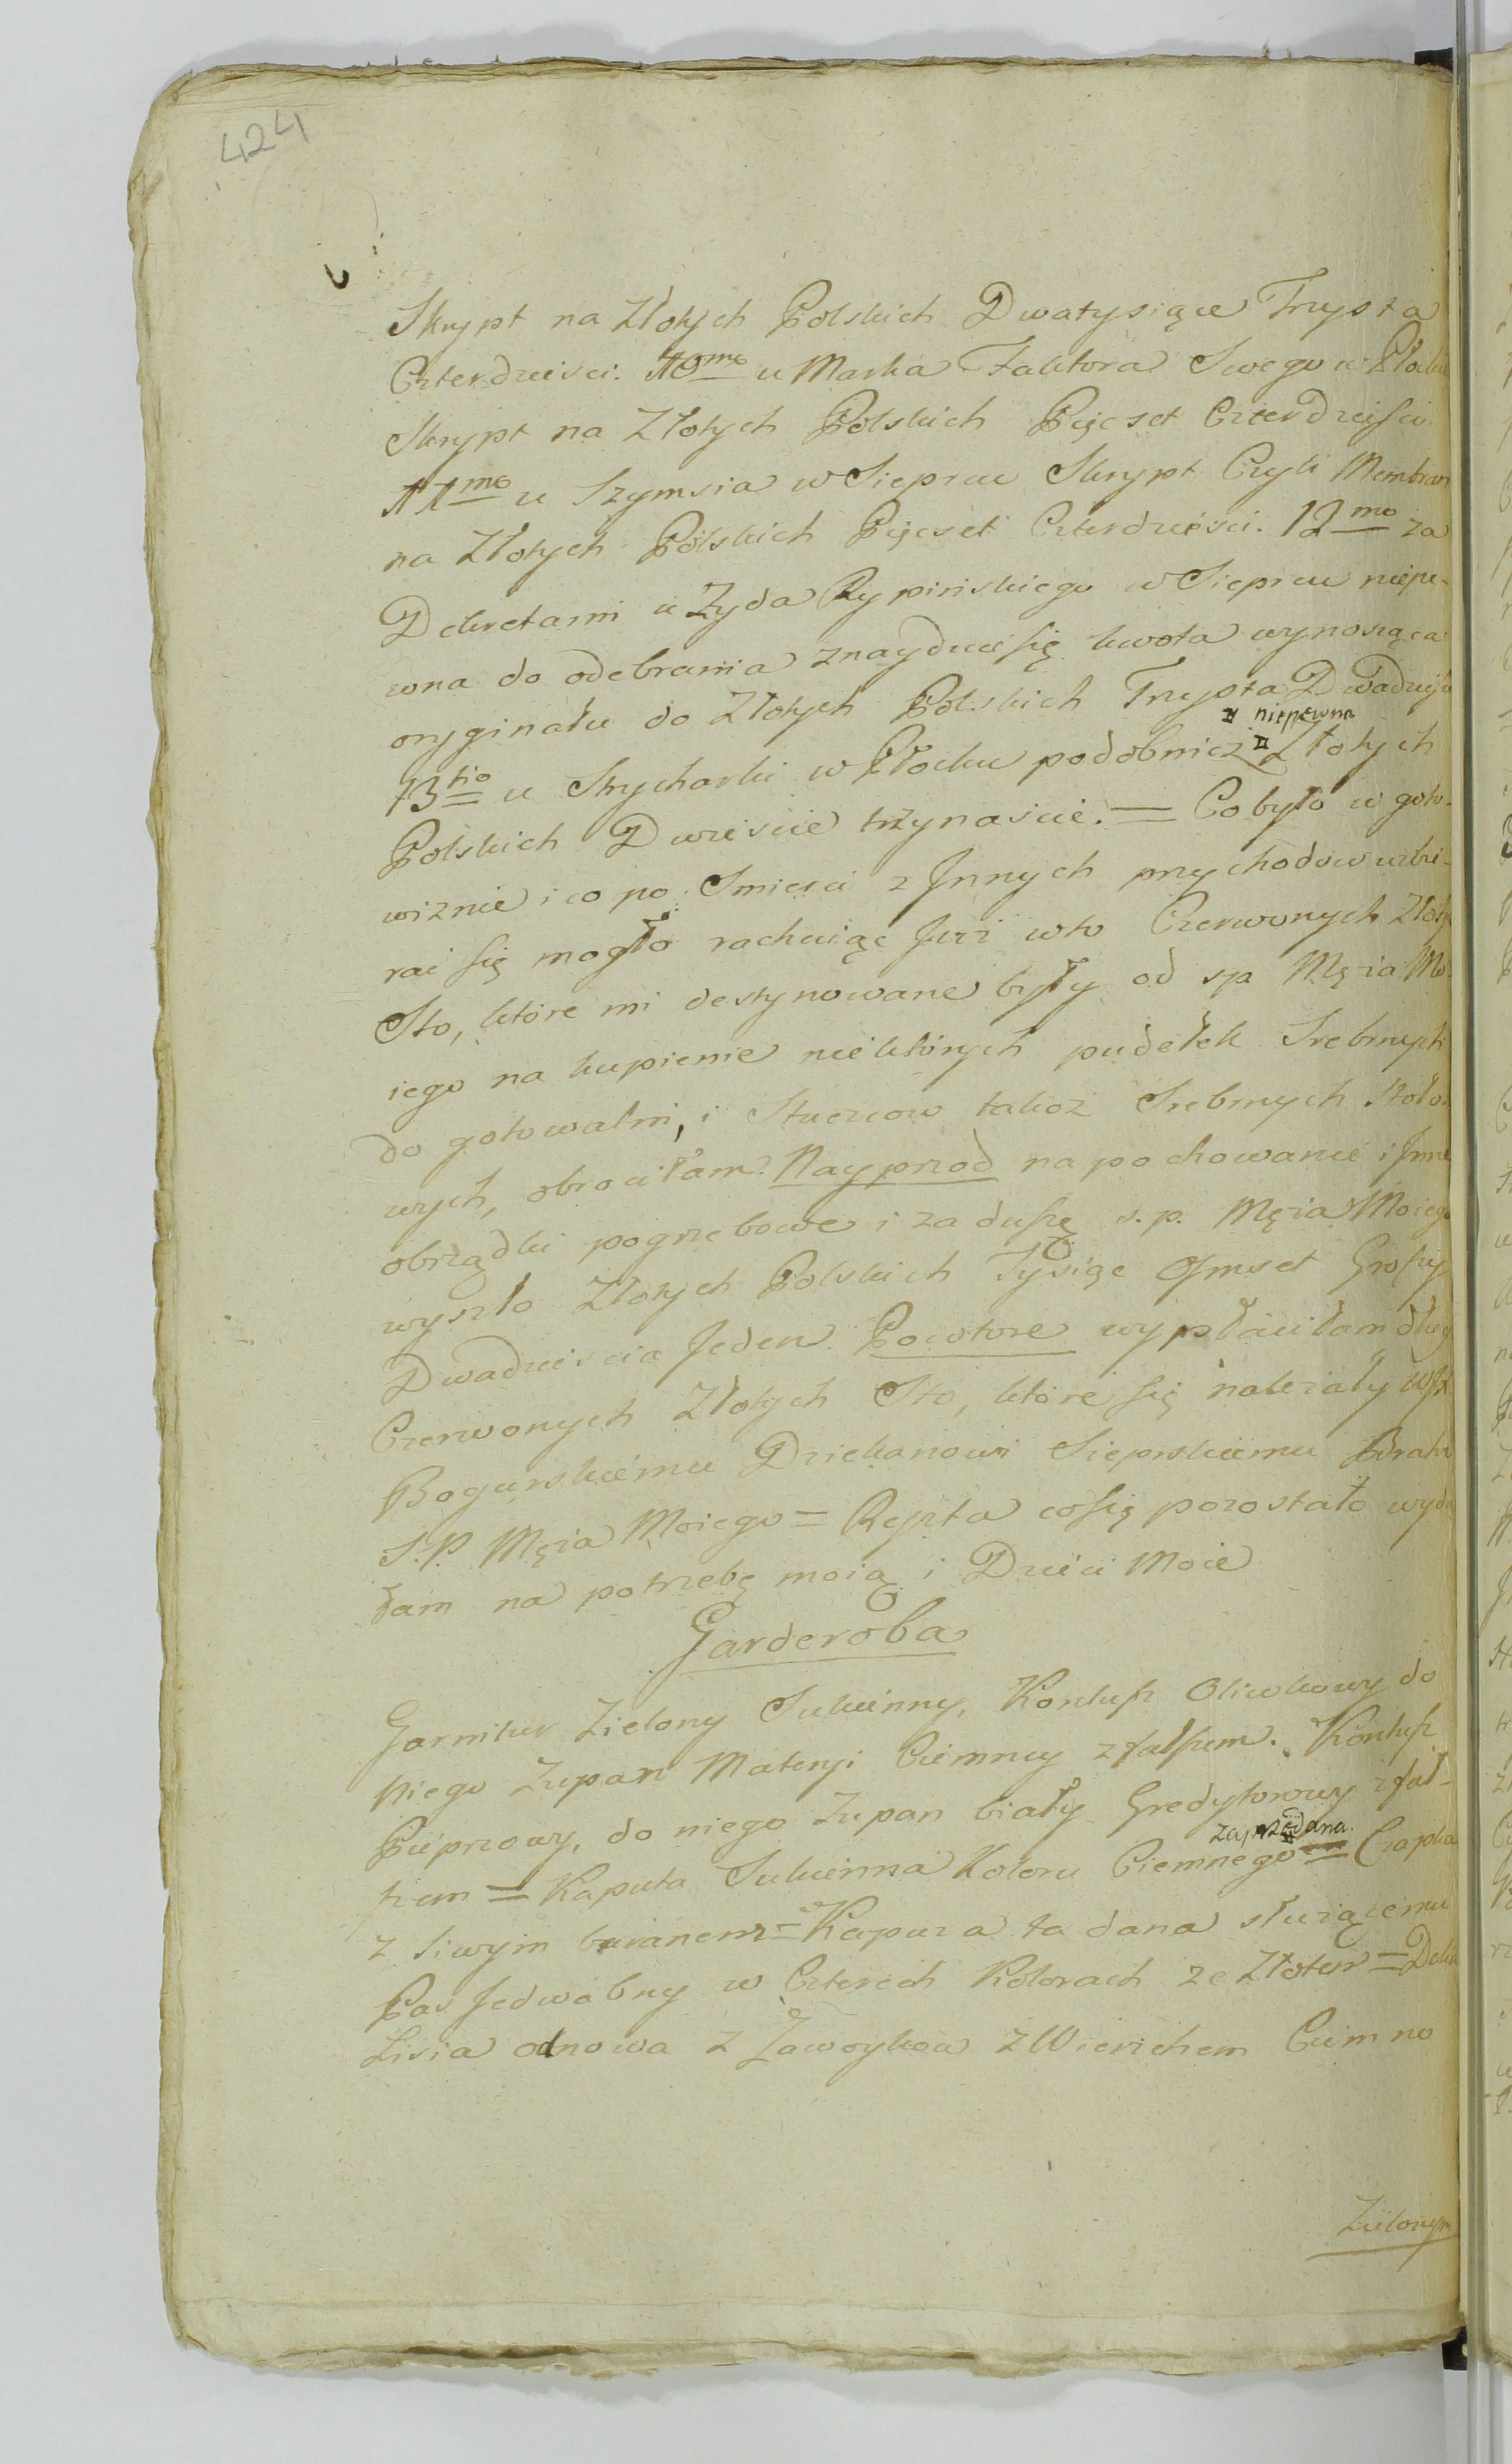 424
Skrypt na Złotych Polskich Dwatysiące Trzysta
Czterdzieści. 10mo u Marka Faktora Swego w Płocku
Skrypt na Złotych Polskich Pięcset Czterdzieści
11mo u Szymsia w Sieprcu Skrypt Czyli Membran
na Złotych Polskich Pięcset Czterdzieści. 12mo za
Dekretami u Zyda Rypińskiego w Sieprcu niepe-
wna do odebrania znayduie się kwota wynosząca
oryginału do Złotych Polskich Trzysta Dwadzieścia
# niepewna
13tio u Strycharki w Płocku podobnież # Złotych
Polskich Dwieście trzynaście. = Co było w goto-
wiznie i co po Smierci z Jnnych przychodow uzbi-
rać się mogło rachuiąc Juz i wto Czerwonych Złotych
Sto, które mi destynowane były od sp Męża Mo-
iego na kupienie niektórych pudełek Srebrnych
do gotowalni, i Stuczcow takoż Srebrnych stoło-
wych, obrociłam. Nayprzod na pochowanie i Jnne
obrządki pogrzebowe i za duszę s. p. Męża Moiego
wyszło Złotych Polskich Tysiąc Osmset Groszy
Dwadzieścia Jeden. Powtore wypłaciłam dług
Czerwonych Złotych Sto, które się należały
Bogurskiemu Dziekanowi Sieprskiemu Bratu
S. P. Męża Moiego = Reszta co się pozostało wyda
łam na potrzebę moią i Dzieci Moie
Garderoba
Garnitur Zielony Sukienny, Kontusz Oliwkowy do
niego Zupan Materyi Ciemney z fałszem. Kontusz
Pieprzowy, do niego Zupan biały Gredytorowy z fał-
zaprzedana.
szem = Kaputa Sukienna Koloru Ciemnego = Czapka
z siwym baranem = Kapuza ta dana służącemu
Pas Jedwabny w Czterech Kolorach ze Złotem = Delia
Lisia odnowa z Zawoykow z Wierzchem Ciemno
Zielonym